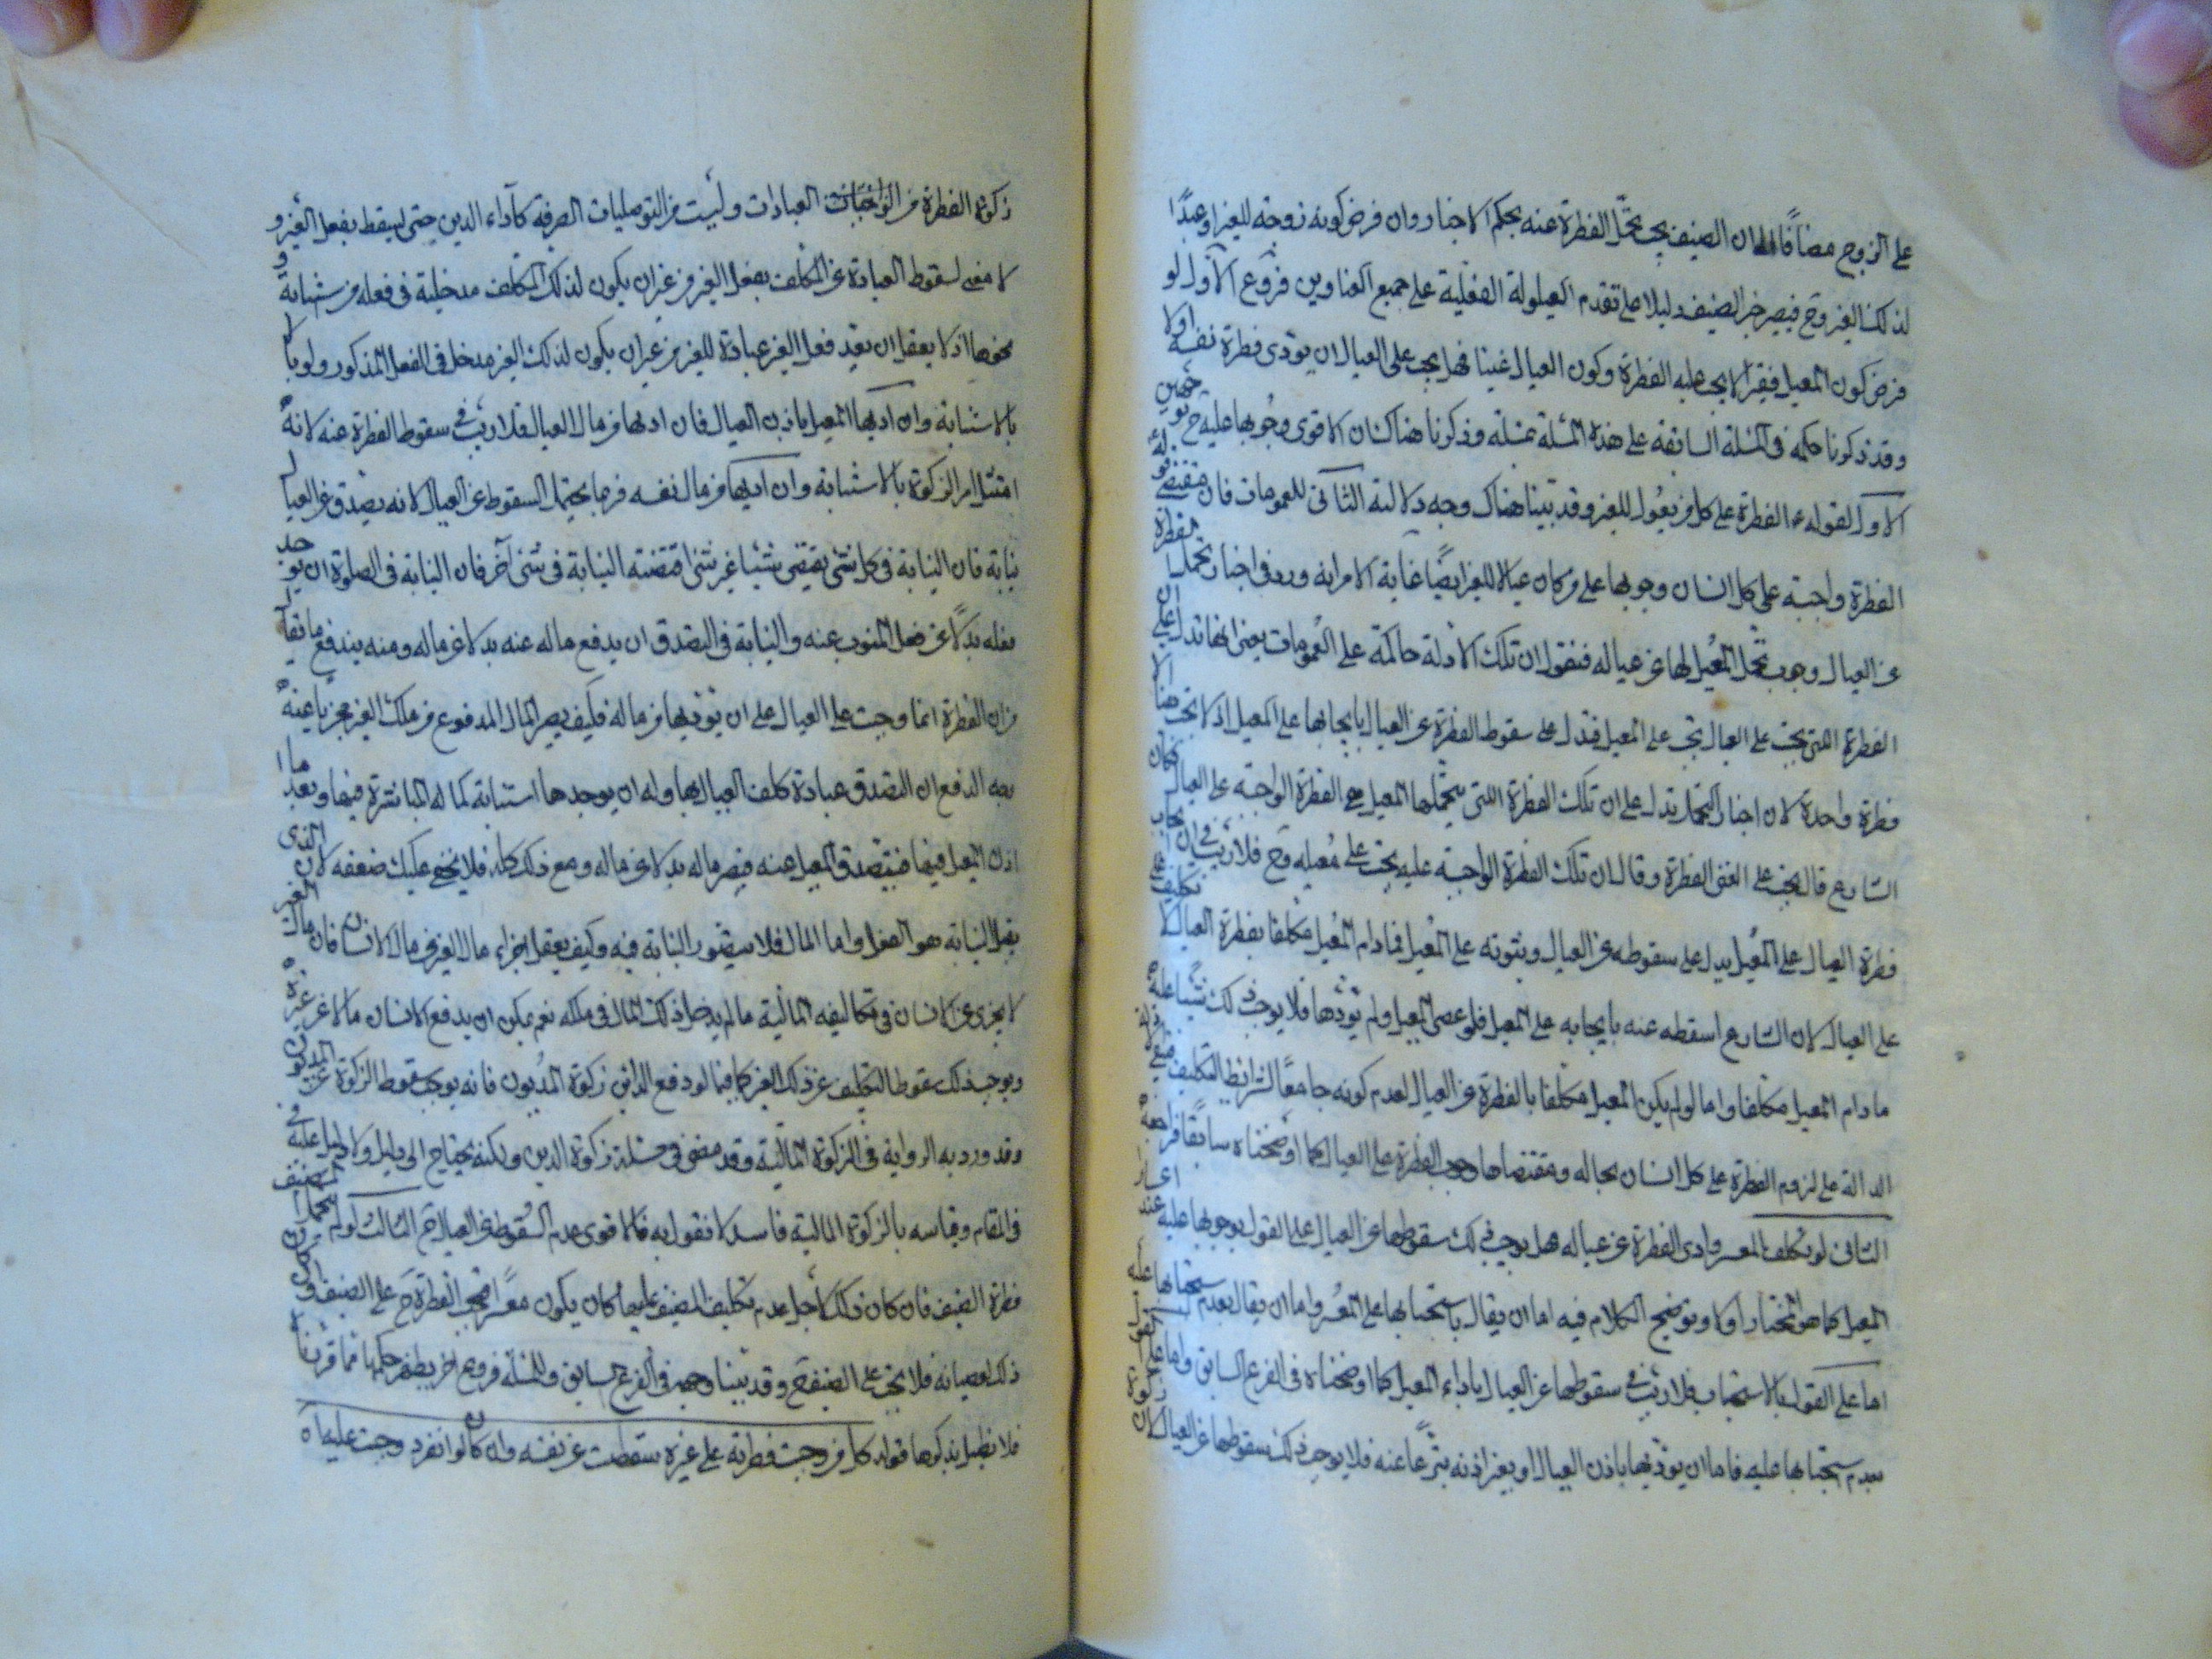 على الزوج مضافا الى ان الضيف يجب تحمل الفطرة عنه بحكم الاخبار وان فرض كونه زوجة للغير او عبدا
لذلك الغير وح فيصير خبر الضيف دليلا على تقدم العيلولة الفعلية على جميع العناوين فروع الاول لو
فرض كون المعيل فقيرا لا يجب عليه الفطرة وكون العيال غنيا فهل يجب على العيال ان يؤدى فطرة نفسه او لا
وقد ذكرنا حكمه فى المسئلة السابقة على هذه المسئلة وذكرنا هناك ان الاقوى وجوبها عليه ح
الاول لقوله ع الفطرة على كل من يعول للغير وقد بينا هناك وجه دلالة الثانى للعمومات فان مقتضى
الفطرة واجبة على كل انسان وجوبها على من كان عيالا للغير ايضا غاية الامر انه ورد فى اخبار تحمل الفطرة
عن العيال وجوب تحمل المعيل لها عن عياله فنقول ان تلك الادلة حاكمة على العمومات يعنى انها تدل على ان
الفطرة التى تجب على العيال تجب على المعيل فتدل على سقوط الفطرة عن العيال بايجابها على المعيل اذ لا تجب هنا الا
فطرة واحدة لان اخبار التحمل تدل على ان تلك الفطرة التى يتحملها المعيل هى الفطرة الواجبة على العيال فكان
الشارع قال يجب على الغنى الفطرة وقال ان تلك الفطرة الواجبة عليه يجب على معيله وح فلا ريب فى ان ايجاب
فطرة العيال على المعيل يدل على سقوطه عن العيال وثبوته على المعيل فمادام المعيل مكلفا بفطرة العيال لا تكليف
على العيال لان الشارع اسقطه عنه بايجابه على المعيل فلو عصى المعيل ولم يؤدها فلا يوجب ذلك شيئا عليه
ما دام المعيل مكلفا واما لو لم يكن المعيل مكلفا بالفطرة عن العيال لعدم كونه جامعا لشرائط التكليف
الدالة على لزوم الفطرة على كل انسان بحاله ومقتضاها وجوب الفطرة على العيال كما اوضحناه سابقا فراجعه
الثانى لو تكلف المعسر وادى الفطرة عن عياله هل يوجب ذلك سقوطها عن العيال على القول بوجوبها عليه عند
المعيل كما هو المختار او لا وتوضيح الكلام فيه اما ان يقال باستحبابها على المعسر واما ان يقال بعدم استحبابها عليه
اما على القول بالاستحباب فلا ريب فى سقوطها عن العيال باداء المعيل كما اوضحناه فى الفرع السابق واما على القول
بعدم استحبابها عليه فاما ان يؤديها باذن العيال او بغير اذنه تبرعا عنه فلا يوجب ذلك سقوطها عن العيال لان
زكوة الفطرة من العبادات وليست من التوصليات الصرفة كاداء الدين حتى يسقط بفعل الغير و
لا معنى لسقوط العبادة عن المكلف بفعل الغير من غير ان يكون لذلك المكلف مدخلية فى فعله من
اذ لا يعقل ان يعد فعل الغير عبادة للغير من غير ان يكون لذلك الغير مدخل فى الفعل المذكور ولو
بالاستنابة وان اديها المعيل باذن العيال فان اداها من مال العيال فلا ريب فى سقوط الفطرة عنه لانه
امتثل امر الزكوة بالاستنابة وان اديها من مال نفسه فربما يحتمل السقوط عن العيال لانه يصدق عن العيال
نيابة فان النيابة فى كل شئ يقتضى شيئا غير شئ اقتضته النيابة فى شئ آخر فان النيابة فى الصلوة ان يوجد
فعله بدلا عن فعل المنوب عنه والنيابة فى التصدق ان يدفع ماله عنه بدلا عن ماله ومنه يندفع ما يقال
من ان الفطرة انما وجبت على العيال على ان يؤديها من ماله فكيف يصير المال المدفوع من ملك الغير مجزيا عنه
وجه الدفع ان التصدق عبادة كلف العيال بها وله ان يوجدها استنابة كما له المباشرة فيها وبعد ما
اذن المعيل فيها فيتصدق المعيل عنه فيصير ماله بدلا عن ماله ومع ذلك كله فلا يخفى عليك ضعفه لان الذى
يقبل النيابة هو الفعل واما المال فلا يتصور النيابة فيه وكيف يعقل اجزاء مال الغير من مال الانسان فان مال الغير
لا يجزى عن الانسان فى تكاليفه المالية ما لم يدخل ذلك المال فى ملكه نعم يمكن ان يدفع الانسان مالا عن غيره
ويوجب ذلك سقوط التكليف عن ذلك الغير كما فيما لو دفع الدائن زكوة المديون فانه يوجب سقوط الزكوة عن المديون
وقد ورد به الرواية فى الزكوة المالية وقد مضى فى مسئلة زكوة الدين ولكنه يحتاج الى دليل ولا دليل عليه فى
المقام وقياسه بالزكوة المالية فاسد لا نقول به فالاقوى عدم السقوط عن العيال ح الثالث لو لم يتحمل المضيف
فطرة الضيف فان كان ذلك لاجل عدم تكليف المضيف عليها كان يكون معسرا فتجب الفطرة ح على الضيف وان كان
ذلك لعصيانه فلا يجب على الضيف ح وقد بينا وجهه فى الفرع السابق وللمسئلة فروع اخر يظهر حكمها مما قربناه
فلا نطيل بذكرها قوله كل من وجبت فطرته على غيره سقطت عن نفسه وان كان لو انفرد وجبت عليه اه